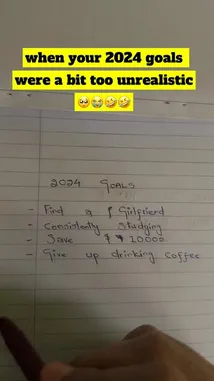 when your 2024 goals
were a bit too unrealistic
🥺😭🤣🤣
2024 GOALS
- Find a Girlfriend
- Consistently studying
- Save $ 10000
- Give up drinking coffee